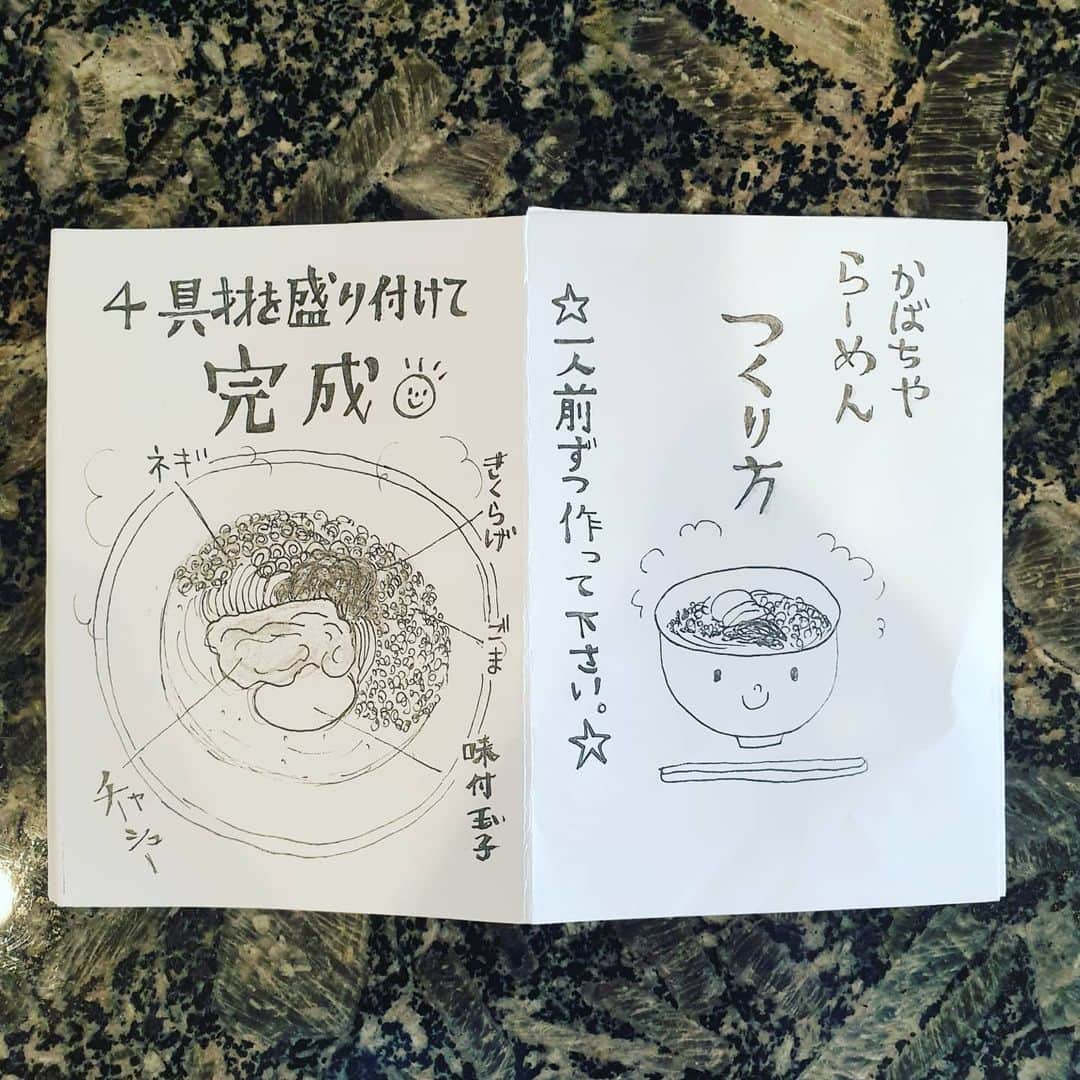 かばちゃ
らーめん
つくり方
☆一人前ずつ作って下さい。☆
4 具材を盛り付けて
完成
ネギ
きくらげ
ごま
味付玉子
チャーシュー